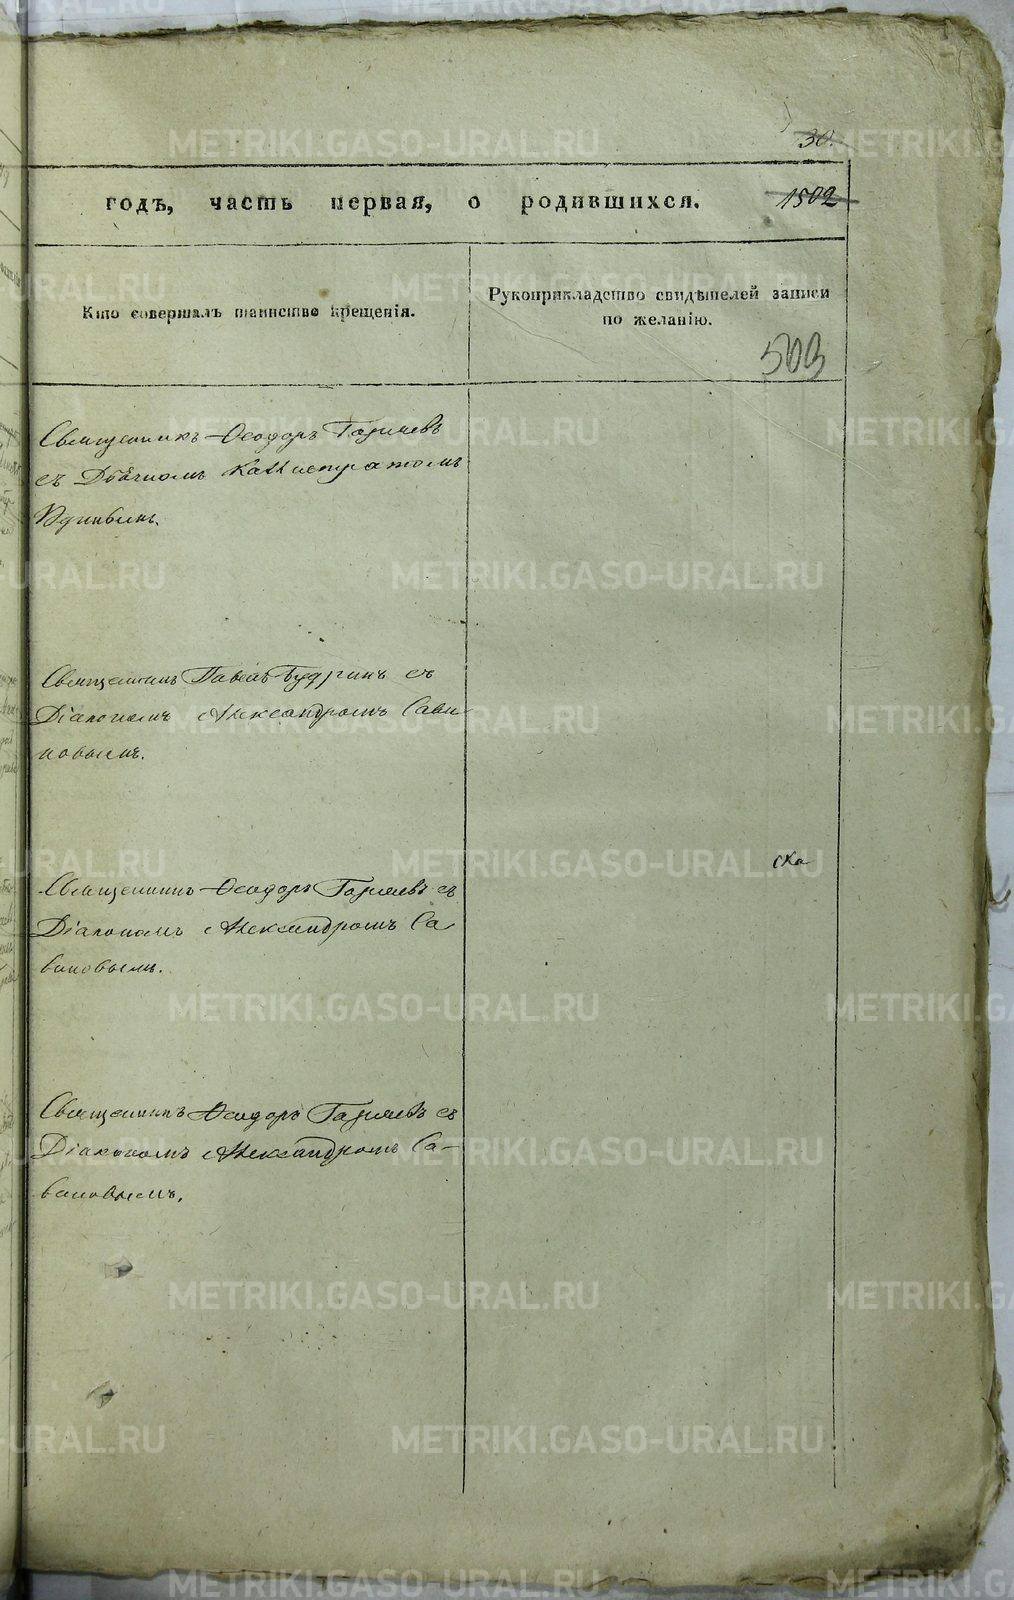 30.
годъ, часть первая, о родившихся. 1502
Кто совершалъ таинство крещенія.
Рукоприкладство свидѣтелей записи
по желанію.
503
Священникъ Ѳеодоръ Гаряевъ
съ Дьячкомъ Каллистратомъ
Удинцевымъ.
Священникъ Павелъ Будринъ съ
Діакономъ Александромъ Сави
новымъ.
ска
Священникъ Ѳеодоръ Гаряевъ съ
Діакономъ Александромъ Са
виновымъ.
Священникъ Ѳеодоръ Гаряевъ съ
Діакономъ Александромъ Са-
виновымъ.
METRIKI.GASO-URAL.RU